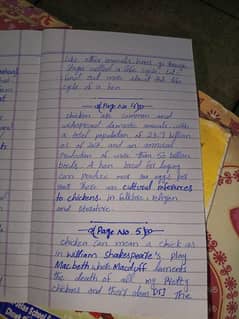 like other animals hens go through
stages called a life cycle. Let's
find out more about the life
cycle of a hen.
Page No 4
chicken are common and
widespread domestic animals, with
a total population of 23.7 billion
as of 2018 and an annual
production of more than 50 billion
birds. A hen bred for laying
can produce over 300 eggs per
year. There are cultural references
to chickens, in folklore, religion
and literature.
Page No 5
chicken can mean a chick as
in William Shakespeare's play
Macbeth where Macduff laments
the death of all my pretty
chickens and their dam [5] The